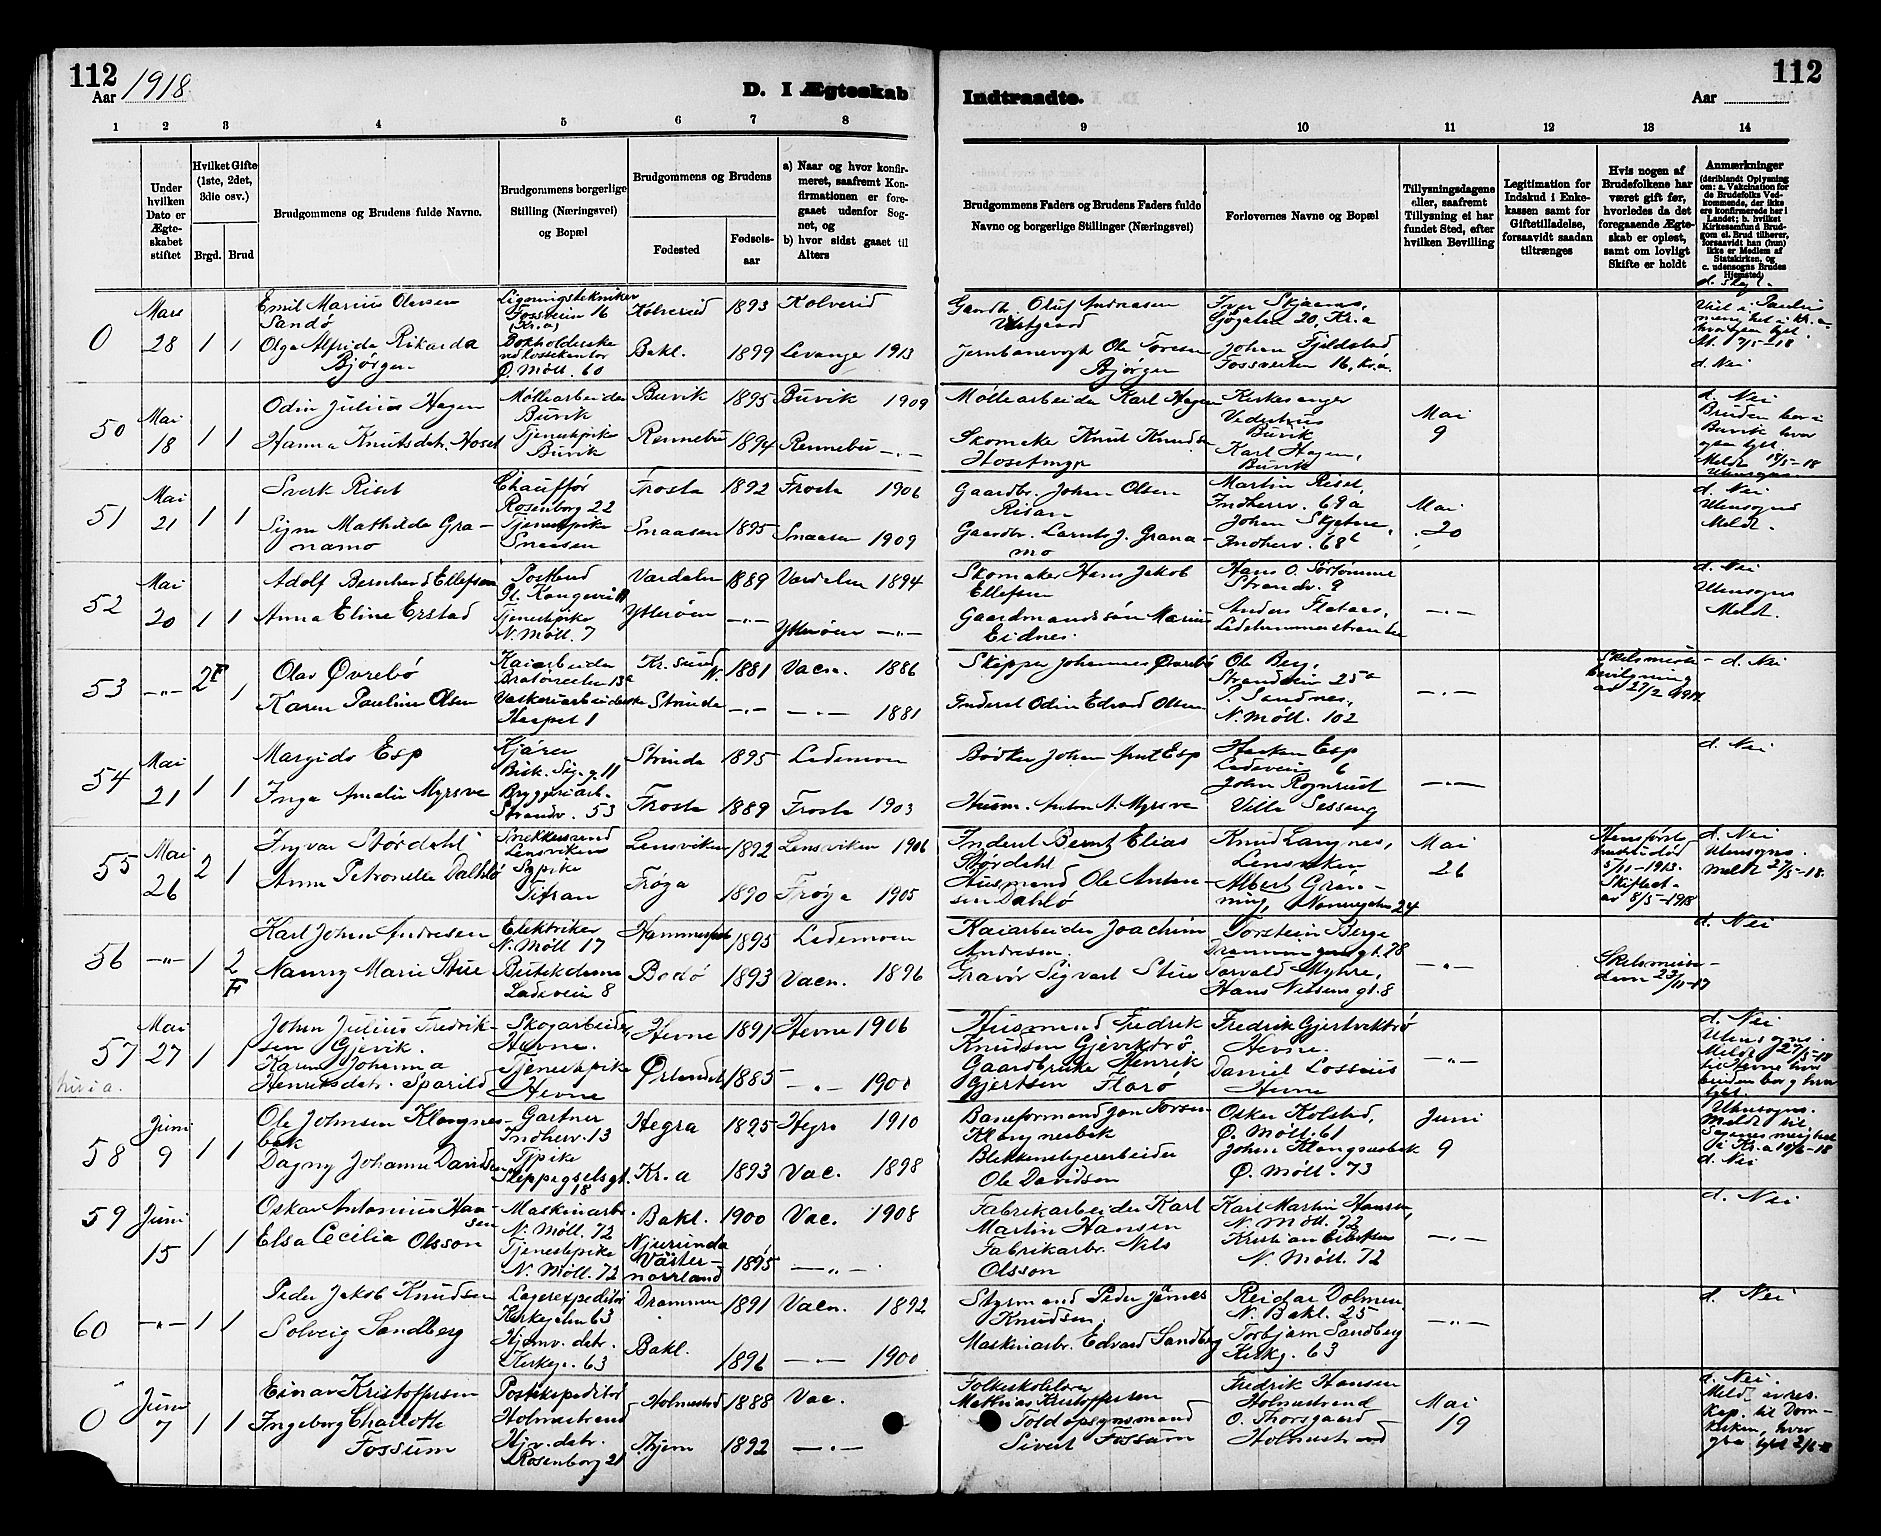 112
Aar 1918
D. I Ægteskab
Indtraadte.
Aar
112
1 2 3 4 5 6 7 8 9 10 11 12 13 14
Under hvilken Dato er Ægteskabet stiftet
Hvilket Gifte (1ste, 2det, 3die osv.)
Brgd. Brud
Brudgommens og Brudens fulde Navne.
Brudgommens borgerlige Stilling (Næringsvei) og Bopæl
Brudgommens og Brudens
Fødested
Fødselsaar
a) Naar og hvor konfirmeret, saafremt Konfirmationen er foregaaet udenfor Sognet, og
b) hvor sidst gaaet til Alters
Brudgommens Faders og Brudens Faders fulde Navne og borgerlige Stillinger (Næringsvei)
Forlovernes Navne og Bopæl
Tillysningsdagene eller, saafremt Tillysning ei har fundet Sted, efter hvilken Bevilling
Legitimation for Indskud i Enkekassen samt for Giftetilladelse, forsaavidt saadan tiltrænges
Hvis nogen af Brudefolkene har været gift før, hvorledes da det foregaaende Ægteskab er opløst, samt om lovligt Skifte er holdt
Anmærkninger
(deriblandt Oplysning om: a. Vakcination for de Brudefolks Vedkommende, der ikke ere konfirmerede her i Landet; b. hvilket Kirkesamfund Brudgom el. Brud tilhører, forsaavidt han (hun) ikke er Medlem af Statskirken, og c. udensogns Brudes Hjemsted)
0 Mars 28 1 1
Emil Marius Olussen Sandö
Olga Alfrida Rikarda Bjørgen
Fossveien 16 (Kr.a)
Ø. Møll. 60
Kolvereid 1893 Kolvereid
Bakl. 1899 Levanger 1913
Gaardbr. Oluf Andreasen
Jernbanevogt Ole Toresen Bjørgen
Gøgaten 20, Kr.a
Johan Fjeldstad
Fossveien 16, Kr.a.
d. Nei
50 Mai 18 1 1
Odin Julius Hagen
Hanna Knutsdat. Hoset
Møllearbeider Buvik
Tjenestpike Buvik
Buvik 1895 Buvik 1909
Rennebu 1894 Rennebu —"—
Møllearbeider Karl Hagen
Skomaker Knut Knudsen
Kirkesanger
Buvik
Karl Hagen, Buvik
Mai 9
d. Nei
Bruden bor i Buvik hvor
Meldt 18/5-18
51 Mai 21 1 1
Sverk Riset
Signe Mathilde Granamo
Chauffør Rosenborg 22
Tjenestpike Snaasen
Frosta 1892 Frosta 1906
Snaasen 1895 Snaasen 1909
Gaardbr. Johan Olsen Risan
Gaardbr. Larnts J. Granamo
Martin Riset
Indherv. 69a
Johan Skjetne,
Indherv. 68b
Mai 20
d. Nei
Utensogns
Meldt.
52 Mai 20 1 1
Adolf Bernhard Ellefsen
Anna Eline Erstad
Postbud
Gl. Kongevei 11
Tjenestpike
N. Møll. 7
Værdalen 1889 Værdalen 1894
Ytterøen —"— Ytterøen —"—
Skomaker Hans Jakob Ellefsen
Gaardmandssøn Marius Eidnes.
Hans O. Sørtømme
Strandv. 9
Anders Flataas,
—"—
d. Nei
Utensogns
Meldt.
53 —"— 2F 1
Olav Øvrebö
Karen Pauline Olsen
Kaiarbeider
Bratörveiten 13a
Vaskeriarbeiderske
Hospet 1
Kr.sund N. 1881 Vacn. 1886
Strinda —"— —"— 1881
Skipper Johannes Øvrebö
Inderst Odin Edvard Olsen
Ole Berg,
Strandvein 25a
P. Sandnes,
N. Møll. 102
—"—
Skilsmissebevilgning av 27/2 1918.
d. Nei
54 Mai 21 1 1
Margido Esp
Inga Amalie Myrsve
Kjører
Bisk. Sig. g. 11
Bryggeriarb.
Strandv. 53
Strinda 1895 Lademoen
Frosta 1889 Frosta 1903
Bødker Johan Arnt Esp
Husm. Anton A. Myrsve
Haakon Esp
Ladeveien 6
John Rognrust
Villa Solseng
—"—
d. Nei
55 Mai 26 2 1
Ingvar Stördahl
Anna Petronelle Dalhlö
Snekkersvend
Lensviken
Sypike
Titran
Lensviken 1892 Lensviken 1906
Frøya 1890 Frøya 1905
Inderst Bernt Elias Stördahl
Husmand Ole Antonsen Dahlö
Knud Langnes,
Lensviken
Albert Grønning, Nonnegaten 24
Mai 26
5/11-1913.
av 8/5-1918
d. Nei
Utensogns.
meldt 27/5-18.
56 —"— 1 2F
Karl Johan Andresen
Nanny Marie Stue
Elektriker
N. Møll 17
Butikdame
Ladeveien 8
Hammerfest 1895 Lademoen
Bodö 1893 Vacn. 1896
Kaiarbeider Joachim Andresen,
Gravør Sigvart Stue
Torstein Berge
Dronningensgt. 28
Torvald Myhre,
Hans Nilsens gt. 8
—"—
Skilsmissedom 23/11-17
d. Nei
57 Mai 27 1 1
Johan Julius Fredriksen Gjevik.
Karen Johanna Henriksdatr. Sparild
Skogarbeider
Hevne.
Tjenestpike
Hevne
Hevne 1891 Hevne 1906
Ørlandet 1885 —"— 1900
Husmand Fredrik Knudsen Gjeviktrö
Gaardbruker Henrik Gjertsen Flarö
Fredrik Gjertviktrö
Hevne.
Daniel Lossius
Hevne
—"—
d. Nei
Utensogns.
Meldt 27/5-18
til Hevne hvor bruden bor
58 Juni 9 1 1
Ole Johnsen Klongnesbak
Dagny Johanne Davidsen
Gartner
Indherv. 13
Tjpike
Kleppegselsgt. 18
Hegra 1895 Hegra 1910
Kr.a 1893 Vac. 1898
Baneformand Jon Torsen Klongnesbak
Blikkenslagerarbeider Ole Davidsen
Oskar Kolstad,
Ø. Møll. 61
John Klongnesbak
Ø. Møll. 73
Juni 9
Utensogns.
Meldt til
i Kr.a 10/6-18
d. Nei
59 Juni 15 1 1
Oskar Antonius Hansen
Elsa Cecilia Olsson
Maskinarb.
N. Møll. 72
Tjenestpike
N. Møll. 72
Bakl. 1900 Vac. 1908
Njurunda Västernorrland 1895 —"—
Fabrikarbeider Karl Martin Hansen
Fabrikarbr. Nils Olsson
Karl Martin Hansen,
N. Møll. 72
Kristian Eilertsen
N. Møll. 72
—"—
d. Nei
60 —"— 1 1
Peder Jakob Knudsen
Solveig Sandberg
Lagerexpeditör
Kirkegaten 63
Hjemv. datr.
Kirkeg. 63
Drammen 1891 Vacn. 1892
Bakl. 1896 —"— 1900
Styrmand Peder James Knudsen,
Maskinarbr. Edvard Sandberg
Reidar Dolmen,
N. Bakl. 25
Torbjørn Sandberg
Kirkg. 63
—"—
d. Nei
0 Juni 7 1 1
Einar Kristoffersen
Ingeborg Charlotte Fossum
Postekspeditör
Holmestrand
Hjv. datr.
Rosenborg 21
Holmestrand 1888 Vac.
Thjem 1892 —"—
Folkeskolelærer
Mathias Kristoffersen
Toldopsynsmand
Sivert Fossum
Fredrik Hansen
Holmestrand
O. Thorsgaard
Holmestrand
Mai 19
d. Nei.
Meldt av res. kap. til Domkirken, hvor